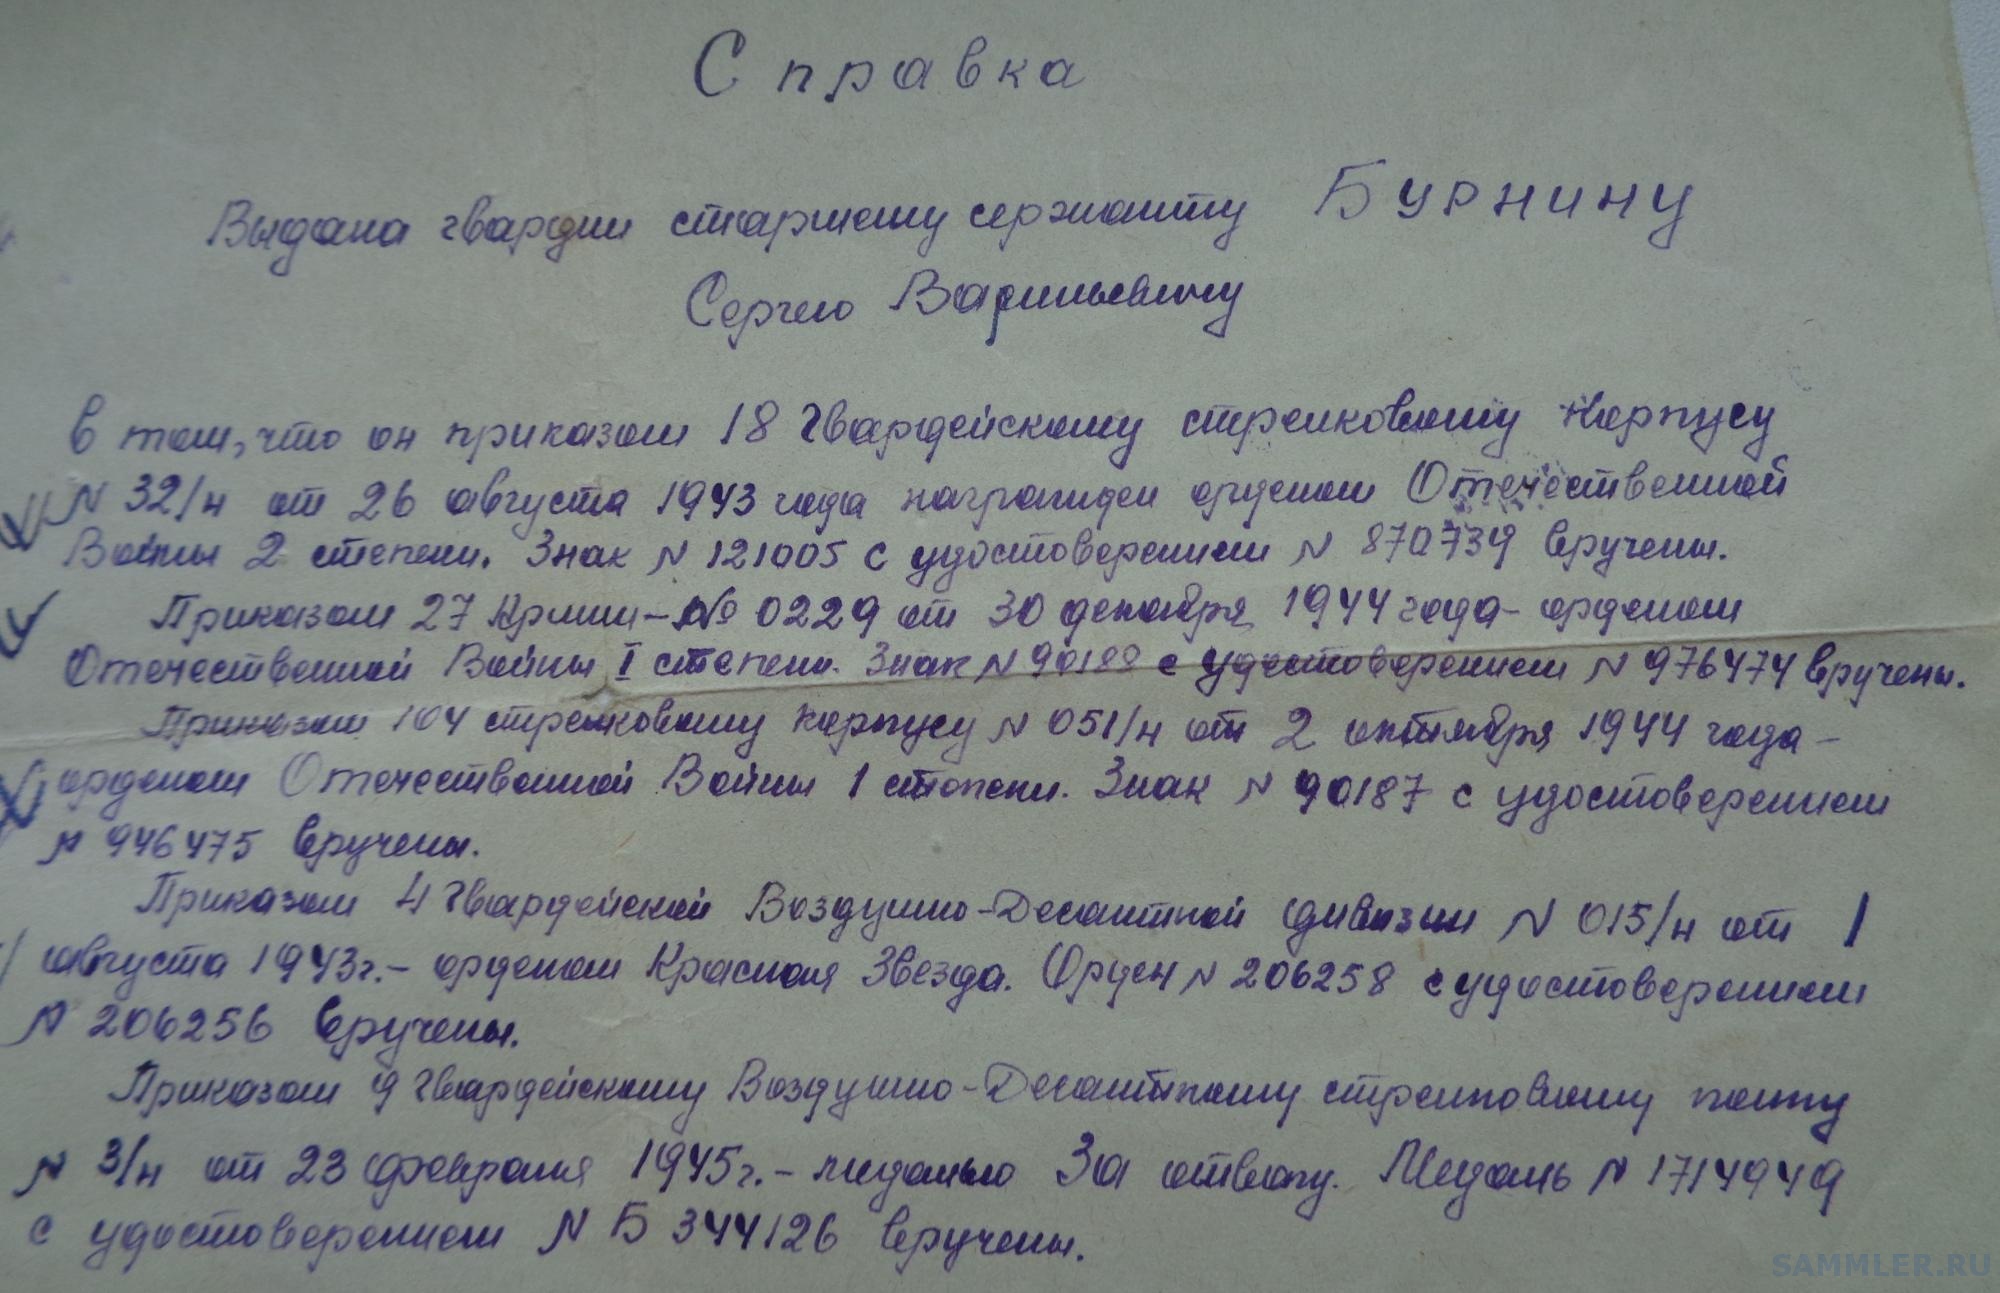 Справка
Выдана гвардии старшему сержанту Бурнину
Сергею Васильевичу
в том, что он приказом 18 Гвардейскому стрелковому Корпусу
N 32/н от 26 августа 1943 года награжден орденом Отечественной
Войны 2 степени. Знак N 121005 с удостоверением N 870739 вручены.
Приказом 27 Армии - № 0229 от 30 декабря 1944 года - орденом
Отечественной Войны I степени. Знак N 90188 с удостоверением N 976474 вручены.
Приказом 104 стрелковому корпусу N 051/н от 2 октября 1944 года -
орденом Отечественной Войны 1 степени. Знак N 90187 с удостоверением
N 946475 вручены.
Приказом 4 Гвардейской Воздушно-Десантной дивизии N 015/н от 1
августа 1943г. - орденом Красная Звезда. Орден N 206258 с удостоверением
N 206256 вручены.
Приказом 9 Гвардейскому Воздушно-Десантному стрелковому полку
N 3/н от 23 февраля 1945г. - медалью За отвагу. Медаль N 1714949
с удостоверением N Б 344126 вручены.
SAMMLER.RU